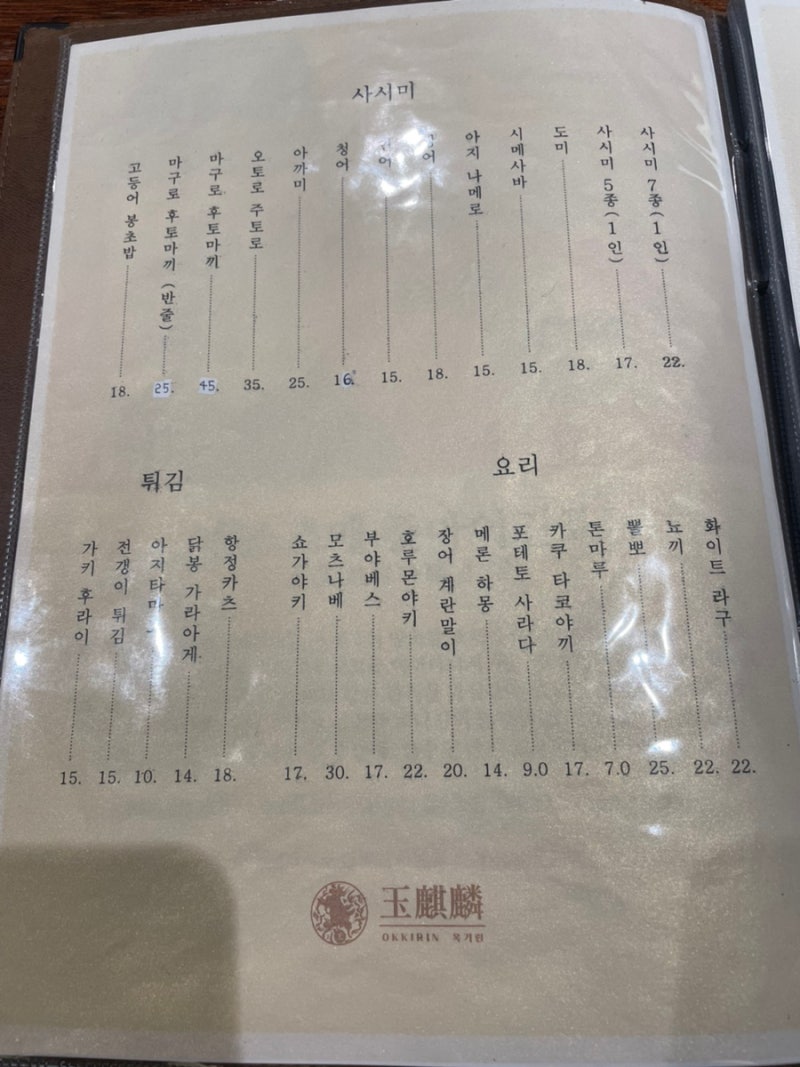 사시미
사시미 7종(1인) 22.
사시미 5종(1인) 17.
도미 18.
시메사바 15.
아지 나메로 15.
18.
15.
청어 16.
아까미 25.
오토로 주토로 35.
마구로 후토마끼 45.
마구로 후토마끼 (반줄) 25.
고등어 봉초밥 18.
요리
화이트 라구 22.
뇨끼 22.
뽈뽀 25.
톤마루 7.0
카쿠 타코야끼 17.
포테토 사라다 9.0
메론 하몽 14.
장어 계란말이 20.
호루몬야키 22.
부야베스 17.
모츠나베 30.
쇼가야키 17.
튀김
항정카츠 18.
닭봉 가라아게 14.
아지타마 10.
전갱이 튀김 15.
가키 후라이 15.
玉麒麟
OKKIRIN 옥기린